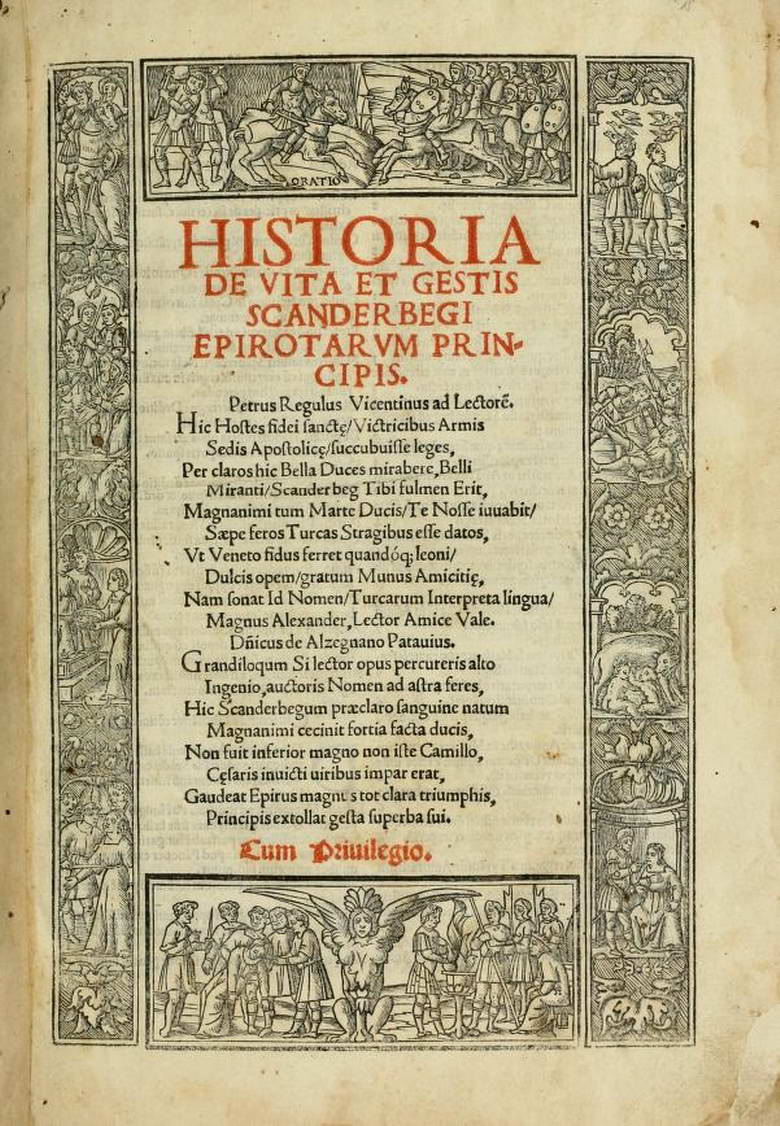 ORATIO
HISTORIA
DE VITA ET GESTIS
SCANDERBEGI
EPIROTARVM PRIN-
CIPIS.
Petrus Regulus Vicentinus ad Lectorē.
Hic Hostes fidei sanctę/Victricibus Armis
Sedis Apostolicę/succubuisse leges,
Per claros hic Bella Duces mirabere, Belli
Miranti/Scanderbeg Tibi fulmen Erit,
Magnanimi tum Marte Ducis/Te Nosse iuuabit/
Sæpe feros Turcas Stragibus esse datos,
Vt Veneto fidus ferret quandóq; leoni/
Dulcis opem/gratum Munus Amicitię,
Nam sonat Id Nomen/Turcarum Interpreta lingua/
Magnus Alexander, Lector Amice Vale.
Dñicus de Alzegnano Patauius.
Grandiloqum Si lector opus percureris alto
Ingenio, auctoris Nomen ad astra feres,
Hic Scanderbegum præclaro sanguine natum
Magnanimi cecinit fortia facta ducis,
Non fuit inferior magno non iste Camillo,
Cęsaris inuicti uiribus impar erat,
Gaudeat Epirus magnis tot clara triumphis,
Principis extollat gesta superba sui.
Cum Priuilegio.